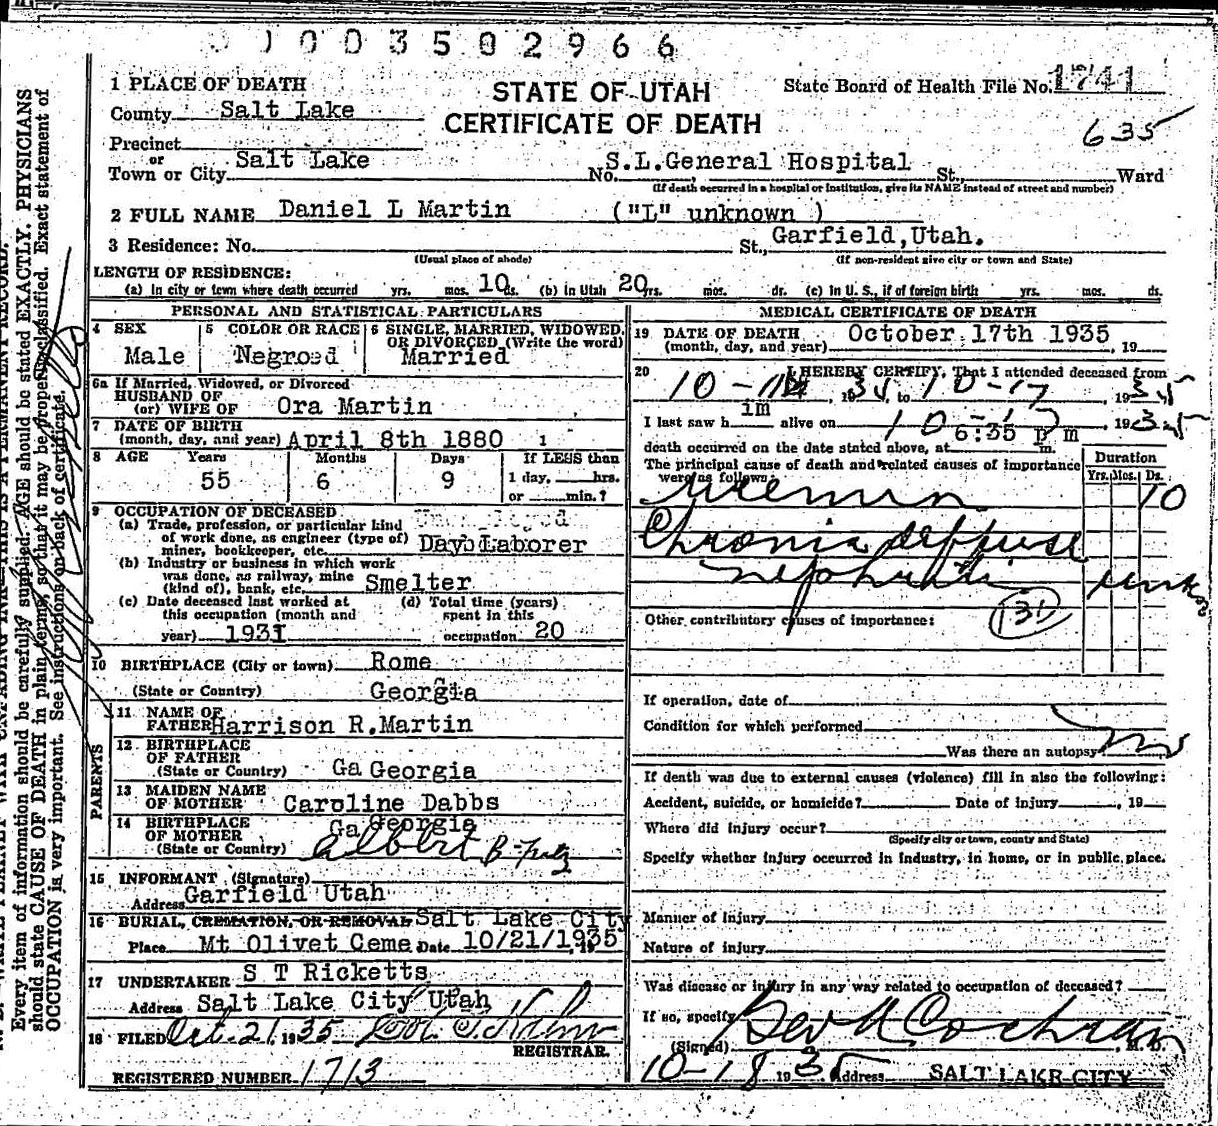 0 0 3 5 0 2 9 6 6
1 PLACE OF DEATH
STATE OF UTAH
CERTIFICATE OF DEATH
State Board of Health File No. 1741
635
County Salt Lake
Precinct
or
Town or City Salt Lake No. S.L.General Hospital St., Ward
(If death occurred in a hospital or institution, give its NAME instead of street and number)
2 FULL NAME Daniel L Martin ("L" unknown )
3 Residence: No. St., Garfield, Utah.
(Usual place of abode) (If non-resident give city or town and State)
LENGTH OF RESIDENCE:
(a) In city or town where death occurred yrs. mos. 10 ds. (b) in Utah 20 yrs. mos. ds. (c) In U. S., if of foreign birth yrs. mos. ds.
PERSONAL AND STATISTICAL PARTICULARS
4 SEX Male
5 COLOR OR RACE Negroed
6 SINGLE, MARRIED, WIDOWED, OR DIVORCED (Write the word) Married
6a If Married, Widowed, or Divorced
HUSBAND OF
(or) WIFE OF Ora Martin
7 DATE OF BIRTH
(month, day, and year) April 8th 1880
8 AGE Years Months Days If LESS than
55 6 9 1 day, hrs.
or min.?
9 OCCUPATION OF DECEASED
(a) Trade, profession, or particular kind
of work done, as engineer (type of)
miner, bookkeeper, etc. Day Laborer
(b) Industry or business in which work
was done, as railway, mine
(kind of), bank, etc. Smelter
(c) Date deceased last worked at
this occupation (month and
year) 1931
(d) Total time (years)
spent in this
occupation 20
10 BIRTHPLACE (City or town) Rome
(State or Country) Georgia
PARENTS
11 NAME OF
FATHER Harrison R.Martin
12 BIRTHPLACE
OF FATHER
(State or Country) Ga Georgia
13 MAIDEN NAME
OF MOTHER Caroline Dabbs
14 BIRTHPLACE
OF MOTHER
(State or Country) Ga Georgia
Albert B
15 INFORMANT (Signature)
Address Garfield Utah
16 BURIAL, CREMATION, OR REMOVAL Salt Lake City
Place Mt Olivet Ceme Date 10/21/1935
17 UNDERTAKER S T Ricketts
Address Salt Lake City Utah
18 FILED Oct. 21, 1935
REGISTRAR.
REGISTERED NUMBER 1713
MEDICAL CERTIFICATE OF DEATH
19 DATE OF DEATH
(month, day, and year) October 17th 1935, 19
20 I HEREBY CERTIFY, That I attended deceased from
1935, to 10-17, 1935
I last saw him alive on 10-17, 1935
death occurred on the date stated above, at 6:35 P m
The principal cause of death and related causes of importance
were as follows:
Duration
Yrs. Mos. Ds.
Uremia 10
Chronic diffuse
nephritis
131
Other contributory causes of importance:
If operation, date of
Condition for which performed
Was there an autopsy? no
If death was due to external causes (violence) fill in also the following:
Accident, suicide, or homicide? Date of injury , 19
Where did injury occur?
(Specify city or town, county and State)
Specify whether injury occurred in industry, in home, or in public place.
Manner of injury
Nature of injury
Was disease or injury in any way related to occupation of deceased?
If so, specify
(Signed) Geo N Cochran, M. D.
10-18 1935 Address SALT LAKE CITY
Every item of information should be carefully supplied. AGE should be stated EXACTLY. PHYSICIANS
should state CAUSE OF DEATH in plain terms, so that it may be properly classified. Exact statement of
OCCUPATION is very important. See instructions on back of certificate.